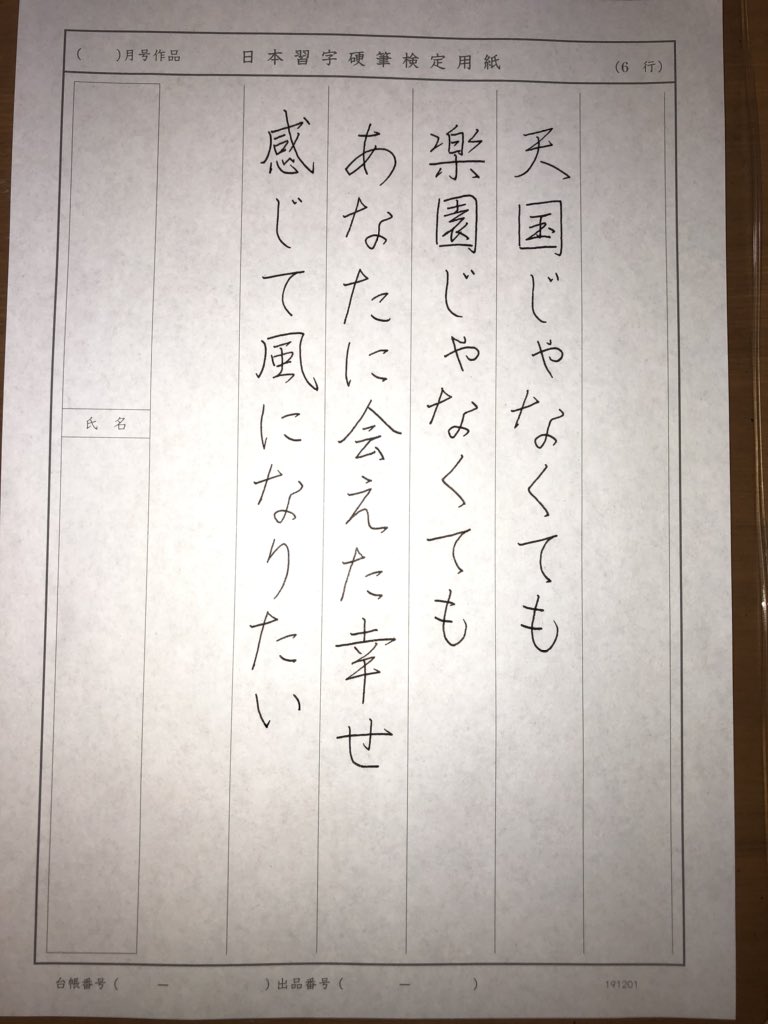 ( )月号作品
日本習字硬筆検定用紙
(6 行)
天国じゃなくても
楽園じゃなくても
あなたに会えた幸せ
感じて風になりたい
氏名
台帳番号( ー )出品番号( ー )
191201